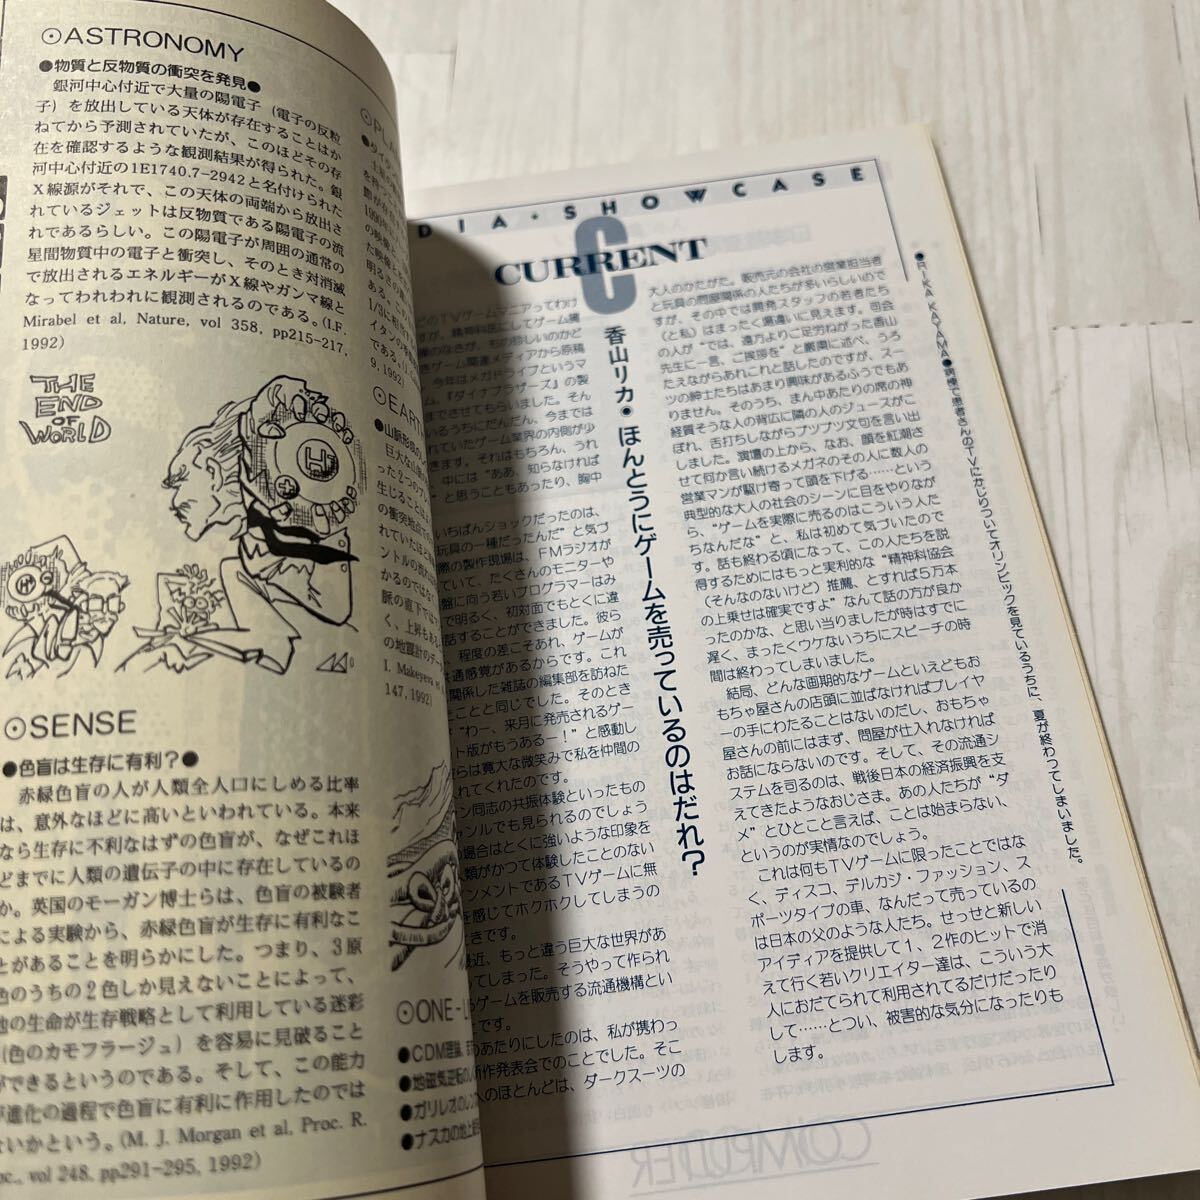 ⊙ASTRONOMY
●物質と反物質の衝突を発見●
銀河中心付近で大量の陽電子（電子の反粒
子）を放出している天体が存在することはか
ねてから予測されていたが、このほどその存
在を確認するような観測結果が得られた。銀
河中心付近の1E1740.7-2942と名付けられた
X線源がそれで、この天体の両端から放出さ
れているジェットは反物質である陽電子の流
れであるらしい。この陽電子が周囲の通常の
星間物質中の電子と衝突し、そのとき対消滅
で放出されるエネルギーがX線やガンマ線と
なってわれわれに観測されるのである。(I.F.
Mirabel et al, Nature, vol 358, pp215-217,
1992)
THE
END
OF
WORLD
⊙SENSE
●色盲は生存に有利？●
赤緑色盲の人が人類全人口にしめる比率
は、意外なほどに高いといわれている。本来
なら生存に不利なはずの色盲が、なぜこれほ
どまでに人類の遺伝子の中に存在しているの
か。英国のモーガン博士らは、色盲の被験者
による実験から、赤緑色盲が生存に有利なこ
とがあることを明らかにした。つまり、3原
色のうちの2色しか見えないことによって、
他の生命が生存戦略として利用している迷彩
（色のカモフラージュ）を容易に見破ること
ができるというのである。そして、この能力
が進化の過程で色盲に有利に作用したのでは
ないかという。(M. J. Morgan et al, Proc. R.
oc., vol 248, pp291-295, 1992)
⊙PLA
1/3に相当
イタンの季節
である。
9, 1992)
⊙EART
●山脈形成の
巨大な山
った2つのプレ
生じることは
の衝突地点で
れていたほど
ントルの
かるのではな
脈の直下では
く、上昇もあ
の地震計のデー
I. Makeyeva e
147, 1992)
⊙ONE-L
●CDM理論、
●地磁気逆転の
●ガリレオのレン
●ナスカの地上絵
DIA・SHOWCASE
C
CURRENT
香山リカ・ほんとうにゲームを売っているのはだれ？
●RIKA KAYAMA●病棟で患者さんのTVにかじりついてオリンピックを見ているうちに、夏が終わってしまいました。
どのTVゲームマニアってわけ
が、精神科医にしてゲーム
なのが、もの珍しいのかど
きゲーム関連メディアから原稿
今年はメガドライブというマ
ム。『ダイナブラザーズ』の製
までさせてもらいました。そん
いるうちにだんだん、今までは
れていたゲーム業界の内側が少
きます。それはもちろん、うれ
、中には“ああ、知らなければ
”と思うこともあったり、胸中
いちばんショックだったのは、
玩具の一種だったんだ”と気づ
際の製作現場は、FMラジオが
ていて、たくさんのモニターや
盤に向う若いプログラマーはみ
で明るく、初対面でもとくに違
話することができました。彼ら
、程度の差こそあれ、ゲームが
共通感覚があるからです。これ
関係した雑誌の編集部を訪ねた
たことと同じでした。そのとき
“わー、来月に発売されるゲー
ット版がもうあるー！”と感動し
らは寛大な微笑みで私を仲間の
れてくれたのです。
ン同志の共振体験といったもの
ャンルでも見られるのでしょう
の場合はとくに強いような印象を
人類がかつて体験したことのない
ンメントであるTVゲームに無
を感じてホクホクしてしまうの
ときです。
最近、もっと違う巨大な世界があ
てしまった。そうやって作られ
らゲームを販売する流通機構とい
とです。
のあたりにしたのは、私が携わっ
新作発表会でのことでした。そこ
人のほとんどは、ダークスーツの
大人のかたがた。販売元の会社の営業担当者
と玩具の問屋関係の人たちが多いらしいので
すが、その中では開発スタッフの若者たち
（と私）はまったく場違いに見えます。司会
の人が“では、遠方よりご足労ねがった香山
先生に一言、ご挨拶を”と厳粛に述べ、うろ
たえながらあれこれと話したのですが、スー
ツの紳士たちはあまり興味があるふうでもあ
りません。そのうち、まん中あたりの席の神
経質そうな人の背広に隣の人のジュースがこ
ぼれ、舌打ちしながらブツブツ文句を言い出
しました。演壇の上から、なお、顔を紅潮さ
せて何か言い続けるメガネのその人に数人の
営業マンが駆け寄って頭を下げる……という
典型的な大人の社会のシーンに目をやりなが
ら、“ゲームを実際に売るのはこういう人た
ちなんだな”と、私は初めて気づいたので
す。話も終わる頃になって、この人たちを説
得するためにはもっと実利的な“精神科協会
（そんなのないけど）推薦、とすれば5万本
の上乗せは確実ですよ”なんて話の方が良か
ったのかな、と思い当りましたが時はすでに
遅く、まったくウケないうちにスピーチの時
間は終わってしまいました。
結局、どんな画期的なゲームといえどもお
もちゃ屋さんの店頭に並ばなければプレイヤ
ーの手にわたることはないのだし、おもちゃ
屋さんの前にはまず、問屋が仕入れなければ
お話にならないのです。そして、その流通シ
ステムを司るのは、戦後日本の経済振興を支
えてきたようなおじさま。あの人たちが“ダ
メ”とひとこと言えば、ことは始まらない、
というのが実情なのでしょう。
これは何もTVゲームに限ったことではな
く、ディスコ、デルカジ・ファッション、ス
ポーツタイプの車、なんだって売っているの
は日本の父のような人たち。せっせと新しい
アイディアを提供して1、2作のヒットで消
えて行く若いクリエイター達は、こういう大
人におだてられて利用されてるだけだったり
して……とつい、被害的な気分になったりも
します。